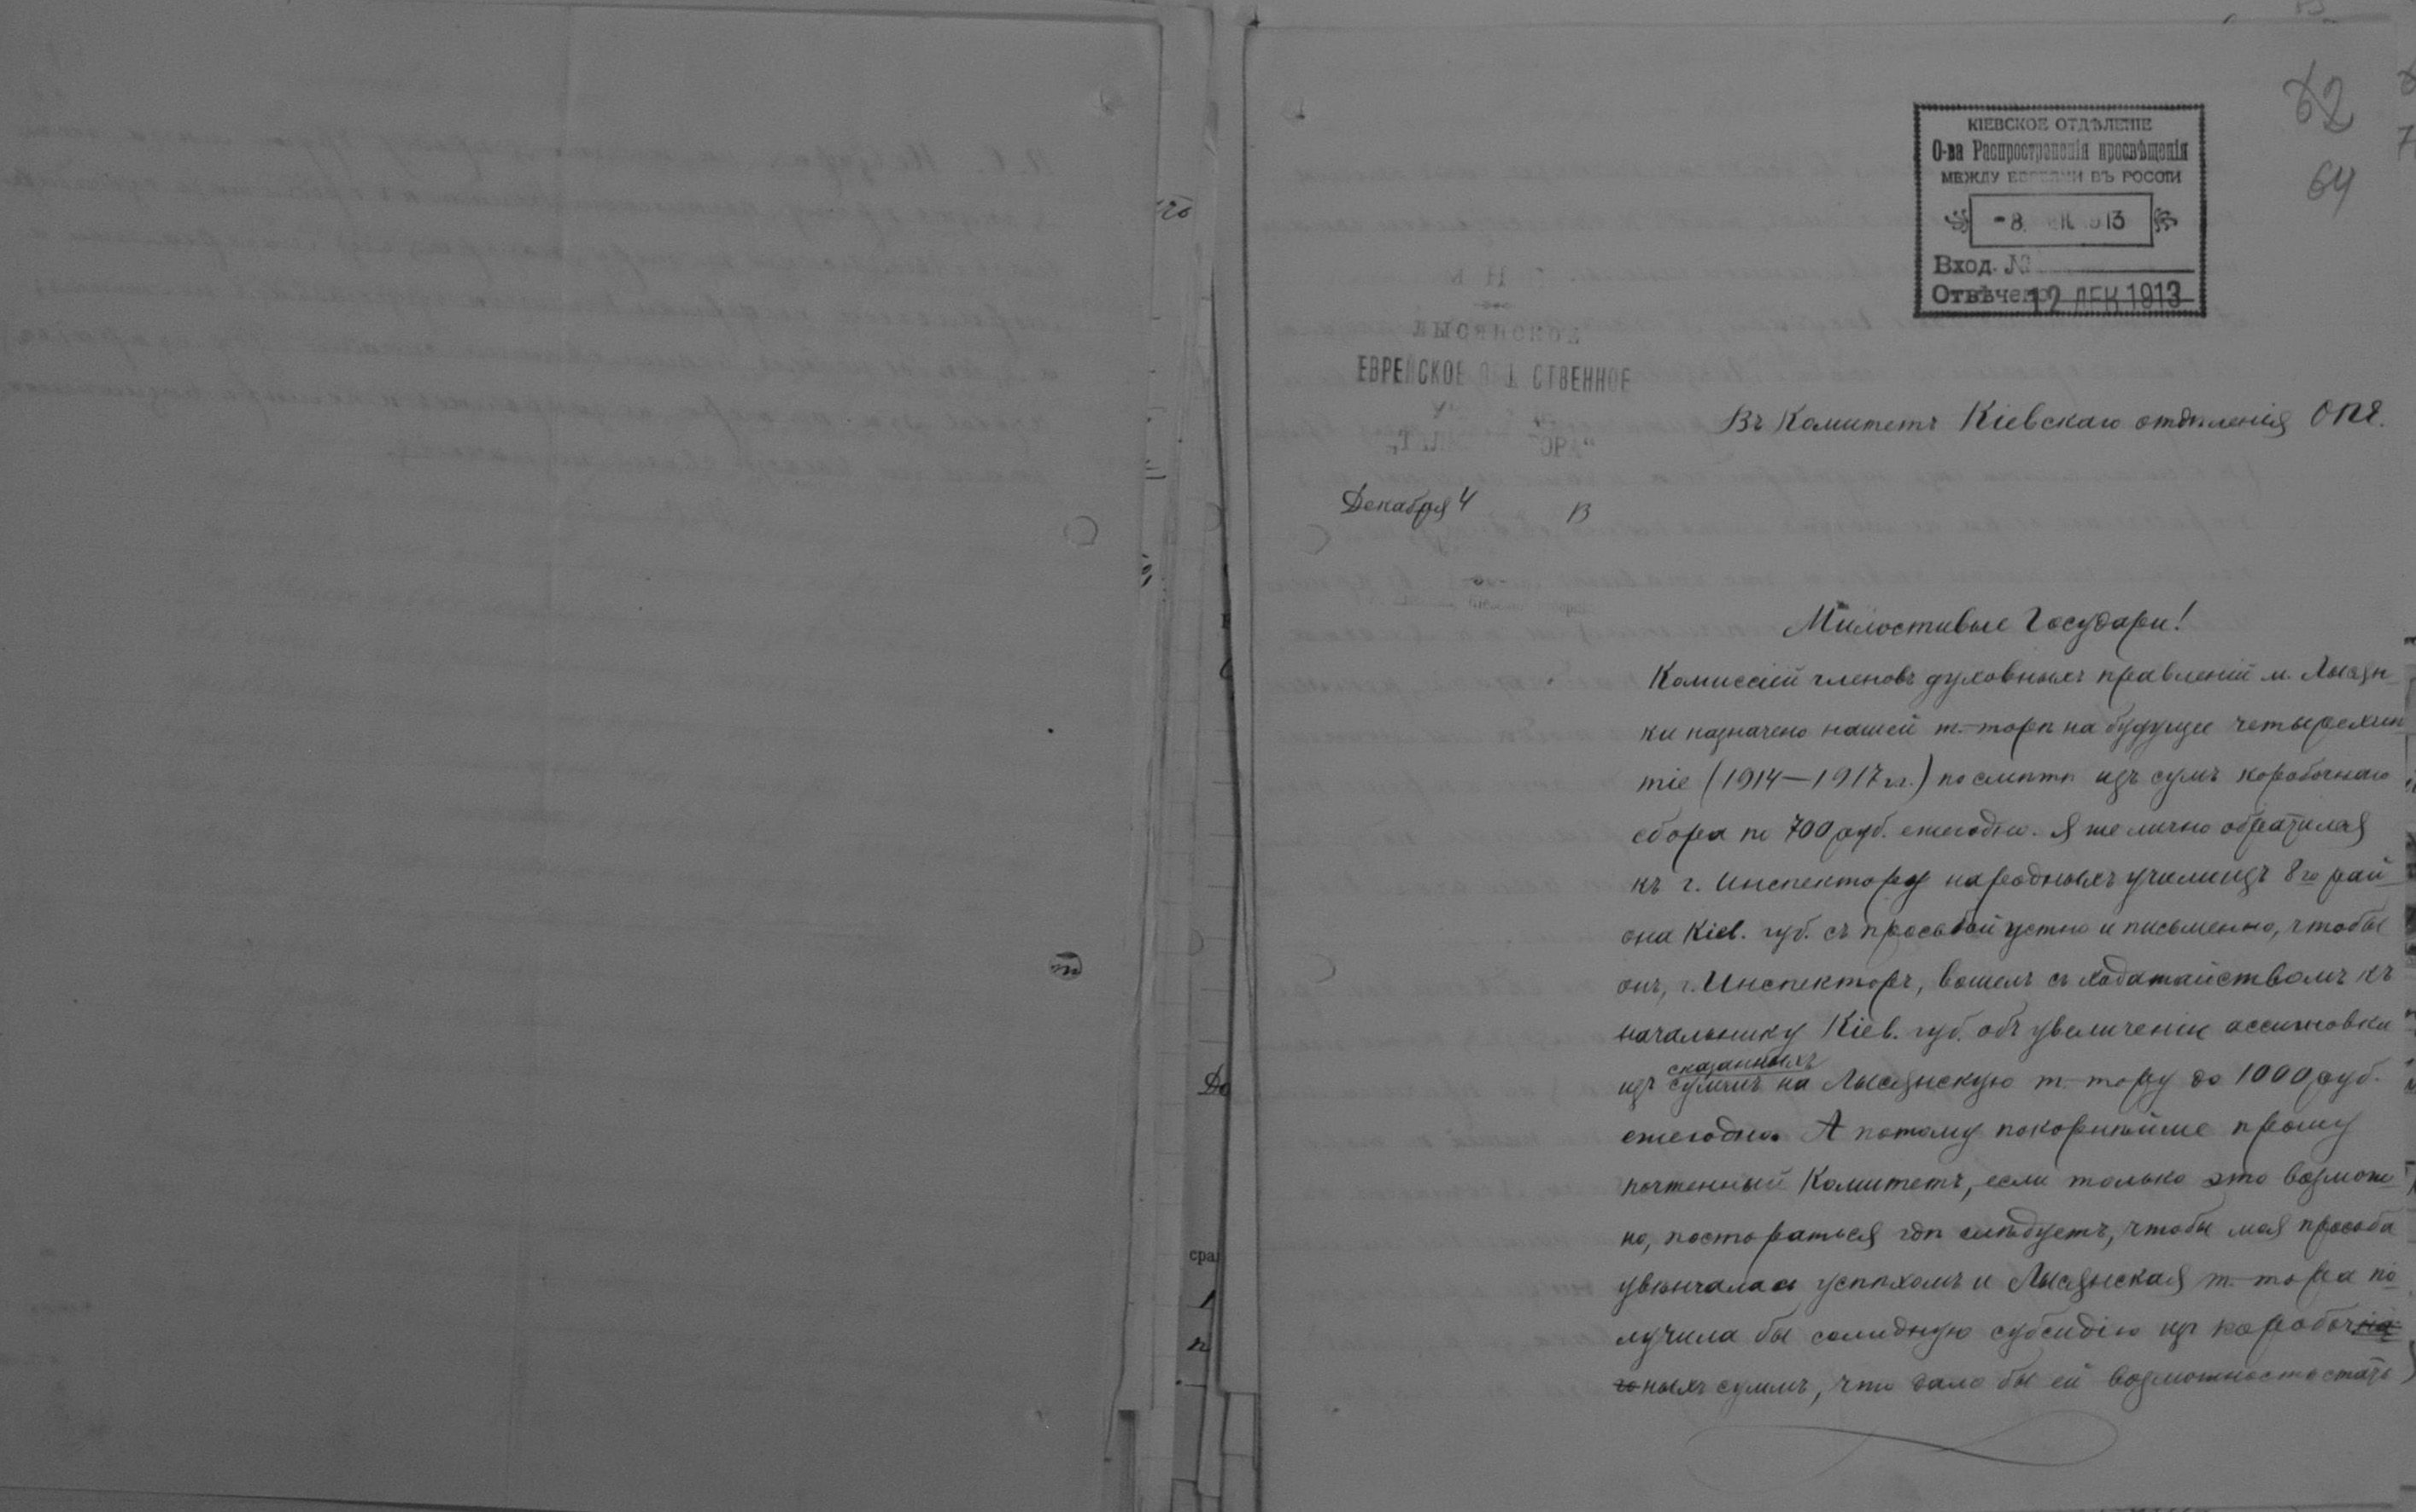 62
64
КІЕВСКОЕ ОТДѢЛЕНІЕ
О-ва Распространенія просвѣщенія
МЕЖДУ ЕВРЕЯМИ ВЪ РОССІИ
-8 1913
Вход. №
Отвѣчено 12 ДЕК 1913
ЛЫСЯНСКОЕ
ЕВРЕЙСКОЕ ОБЩЕСТВЕННОЕ
Въ Комитетъ Кіевскаго отдѣленія ОПЕ.
Декабря 4
Милостивые Государи!
Комиссіей членовъ духовныхъ правленій м. Лысян-
ки назначено нашей т.-торѣ на будущее четырехлѣ
тіе (1914—1917 гг.) по смѣтѣ изъ сумъ коробочнаго
сбора по 700 руб. ежегодно. Я же лично обратился
къ г. Инспектору народныхъ училищъ 8го рай-
она Кіев. губ. съ просьбой устно и письменно, чтобы
онъ, г. Инспекторъ, вошелъ съ ходатайствомъ къ
начальнику Кіев. губ. объ увеличеніи ассигновки
изъ сказанныхъ суммъ на Лысянскую т.-тору до 1000 руб.
ежегодно. А потому покорнѣйше прошу
почтенный Комитетъ, если только это возмож-
но, постораться гдѣ слѣдуетъ, чтобы моя просьба
увѣнчалась успѣхомъ и Лысянская т.-тора по-
лучила бы солидную субсидію изъ коробочна
го ныхъ суммъ, что дало бы ей возможность стать
До
сра